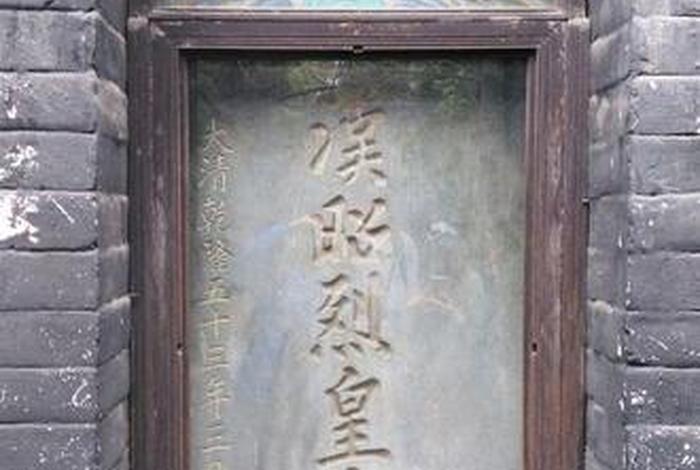 漢昭烈皇
大清乾隆五十三年二